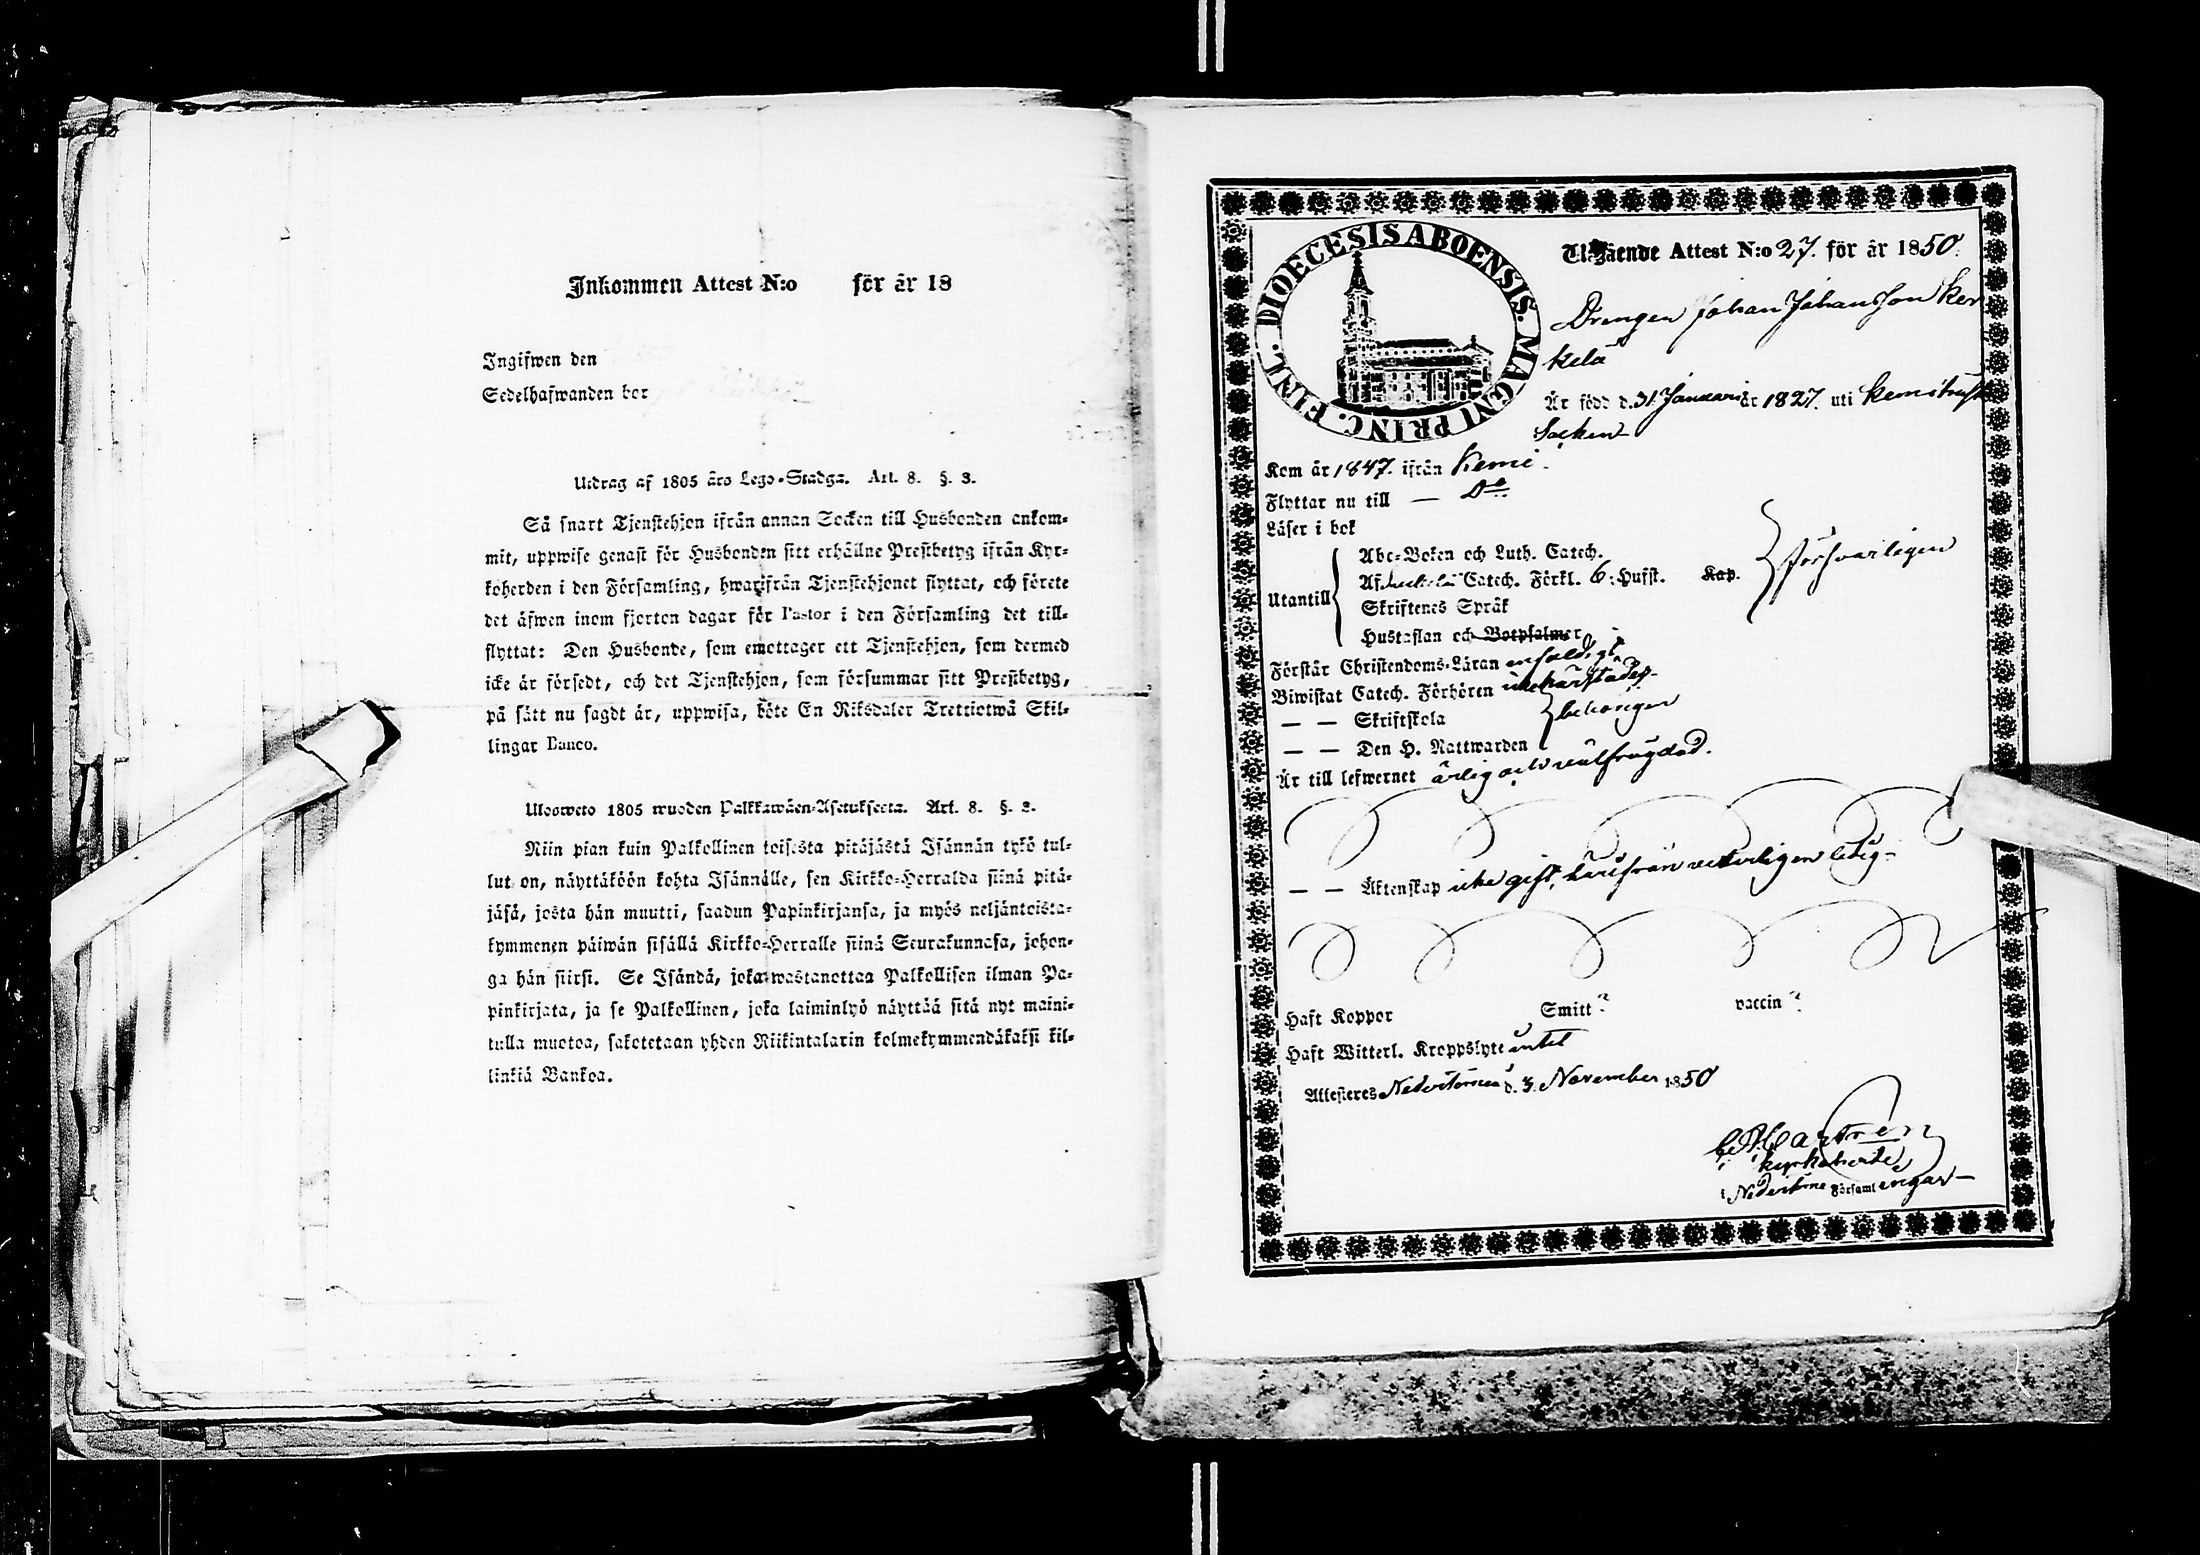 Inkommen Attest N:o för år 18
Ingifwen den
Sedelhafwanden bor
Utdrag af 1805 års Lego-Stadga. Art. 8. §. 3.
Så snart Tjenstehjon ifrån annan Socken till Husbonden ankom-
mit, uppwise genast för Husbonden sitt erhållne Prestbetyg ifrån Kyr-
koherden i den Församling, hwarifrån Tjenstehjonet flyttat, och förete
det äfwen inom fjorton dagar för Pastor i den Församling det till-
flyttat: Den Husbonde, som emottager ett Tjenstehjon, som dermed
icke är försedt, och det Tjenstehjon, som försummar sitt Prestbetyg,
på sätt nu sagdt är, uppwisa, böte En Riksdaler Trettiotwå Skil-
lingar Banco.
Ulosweto 1805 wuoden Palkkawäen-Asetuksesta. Art. 8. §. 3.
Niin pian kuin Palkollinen toisesta pitäjästä Isännän tykö tul-
lut on, näyttäköön kohta Isännälle, sen Kirkko-Herralda siinä pitä-
jäsä, josta hän muutti, saadun Papinkirjansa, ja myös neljäntoista-
kymmenen päiwän sisällä Kirkko-Herralle siinä Seurakunnasa, johon-
ga hän siirsi. Se Isändä, joka wastanottaa Palkollisen ilman Pa-
pinkirjata, ja se Palkollinen, joka laiminlyö näyttää sitä nyt maini-
tulla muotoa, sakotetaan yhden Riikintalarin kolmekymmendäkaksi kil-
linkiä Bankoa.
DIOECESIS ABOENSIS. MAGNI PRINC. FINL.
Utgående Attest N:o 27. för år 1850.
Drengen Johan Johansson Ker
kelä
Är född d. 31 Januari år 1827. uti Kemi
Socken
Kom år 1847. ifrån Kemi.
Flyttar nu till — Do
Läser i bok
Abc-Boken och Luth. Catech.
Af Catech. Förkl. 6: Hufst. Kap.
försvarligen
Utantill
Skriftenes Språk
Hustaflan och Botpsalmer
Förstår Christendoms-Läran enfaldigt
Biwistat Catech. Förhören icke härstädes
— — Skriftskola
behörigen
— — Den H. Nattwarden
Är till lefwernet ärlig och välfrägdad.
— — Äktenskap icke gift, härifrån veterligen ledig
Haft Koppor Smitt? vaccin?
Haft Witterl. Kroppslyte intet
Attesteres Nedertorneå d. 3. November 1850
Castren
Kyrkoherde
i Nedertorne Församlingar